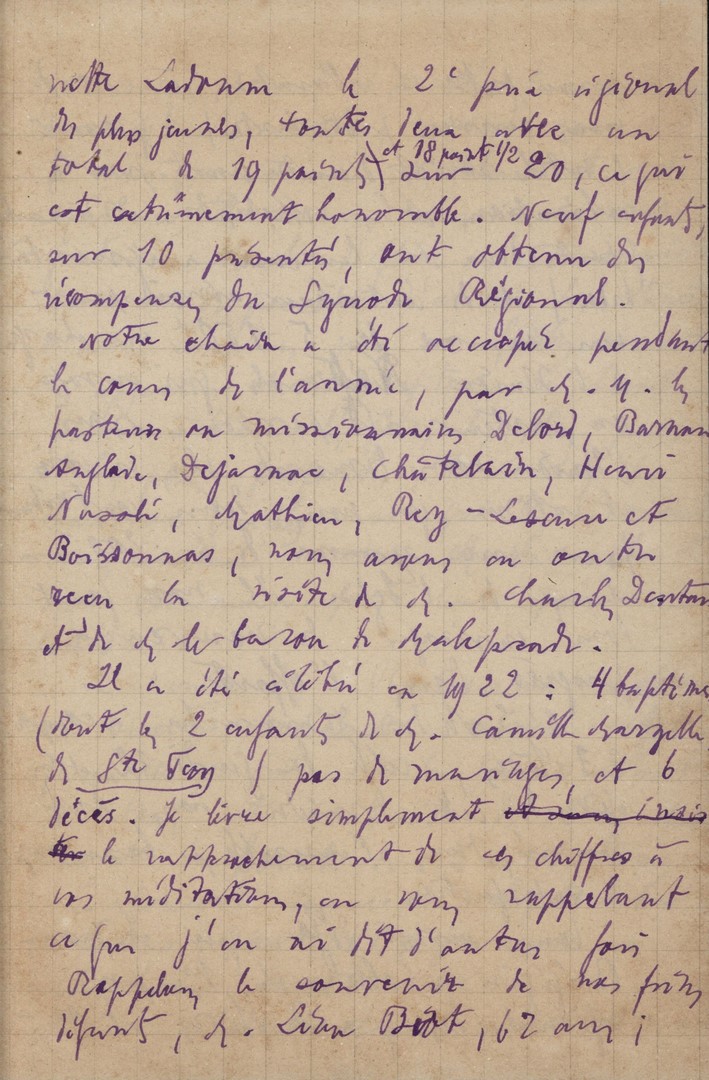 nette Ladonne le 2e prix régional
des plus jeunes, toutes deux avec un
total de 19 points et 18 points 1/2 sur 20, ce qui
est extrêmement honorable. Neuf enfants,
sur 10 présentés, ont obtenu des
récompenses du Synode Régional.
Notre chaire a été occupée pendant
le cours de l'année, par M.M. les
pasteurs ou missionnaires Delord, Barnau
Anglade, Dejarnac, Châtelain, Henri
Mathieu, Rey-Lescure et
Boissonnas, nous avons en outre
reçu la visite de M. Charles
et de M le baron de
Il a été célébré en 1922 : 4 baptêmes
(dont les 2 enfants de M. Camille
de Ste Foy) pas de mariages, et 6
décès. Je livre simplement et sans insis
ter le rapprochement de ces chiffres à
vos méditations, en vous rappelant
ce que j'en ai dit d'autres fois
Rappelons le souvenir de nos frères
défunts, M. 67 ans ;